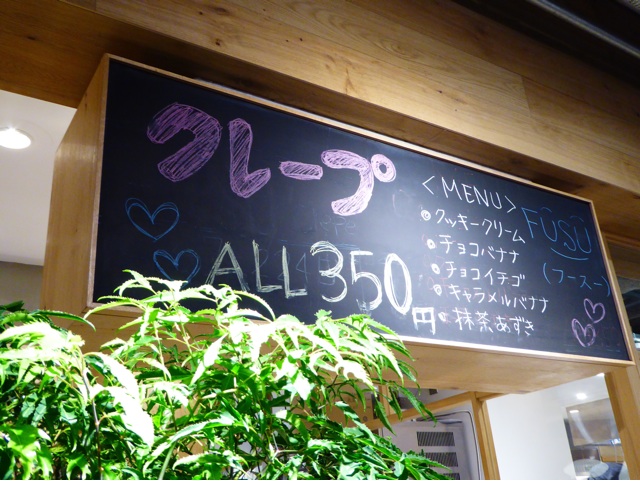 クレープ
ALL 350円
<MENU>
クッキークリーム
チョコバナナ
チョコイチゴ
キャラメルバナナ
抹茶あずき
FŪSŪ
(フースー)